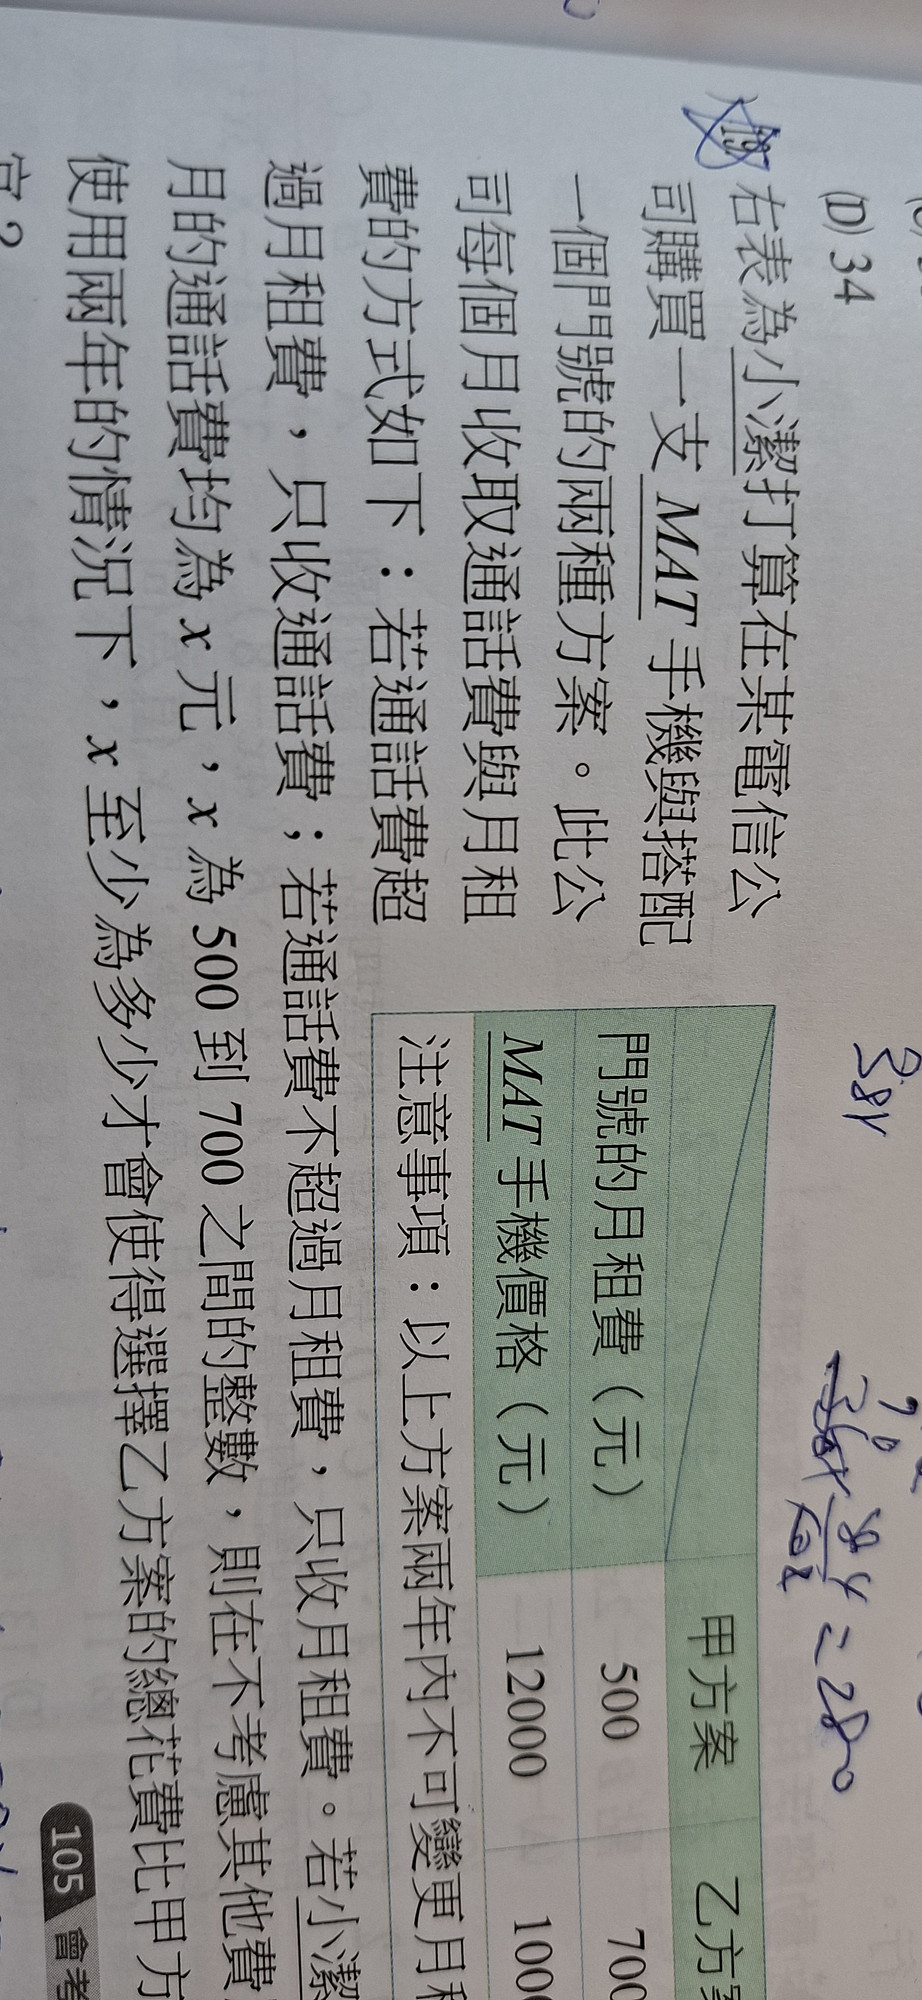 (D) 34
右表為小潔打算在某電信公
司購買一支MAT手機與搭配
一個門號的兩種方案。此公
司每個月收取通話費與月租
費的方式如下：若通話費超
過月租費，只收通話費；若通話費不超過月租費，只收月租費。若小潔
月的通話費均為 x 元，x 為 500 到 700 之間的整數，則在不考慮其他費
使用兩年的情況下，x 至少為多少才會使得選擇乙方案的總花費比甲方
宜？
甲方案 乙方案
門號的月租費（元） 500 700
MAT手機價格（元） 12000 100
注意事項：以上方案兩年內不可變更月租
105 會考
381
= 2800